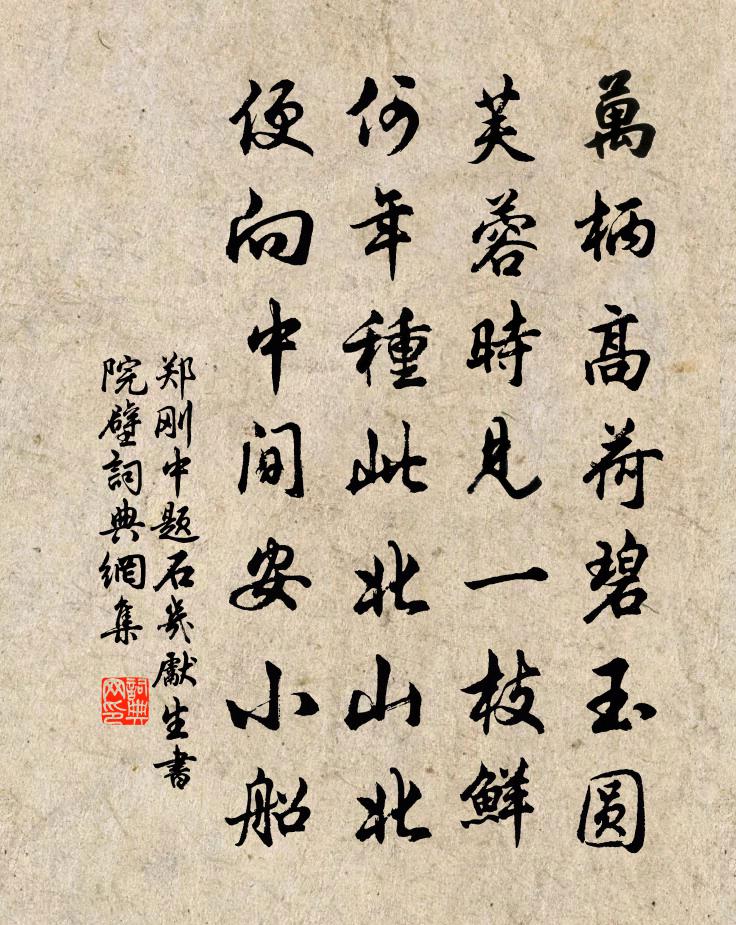 萬柄高荷碧玉圆
芙蓉時見一枝鮮
何年種此北山北
便向中间安小船
郑刚中题石幾獻生書
院壁詞典網集
詞典
网印